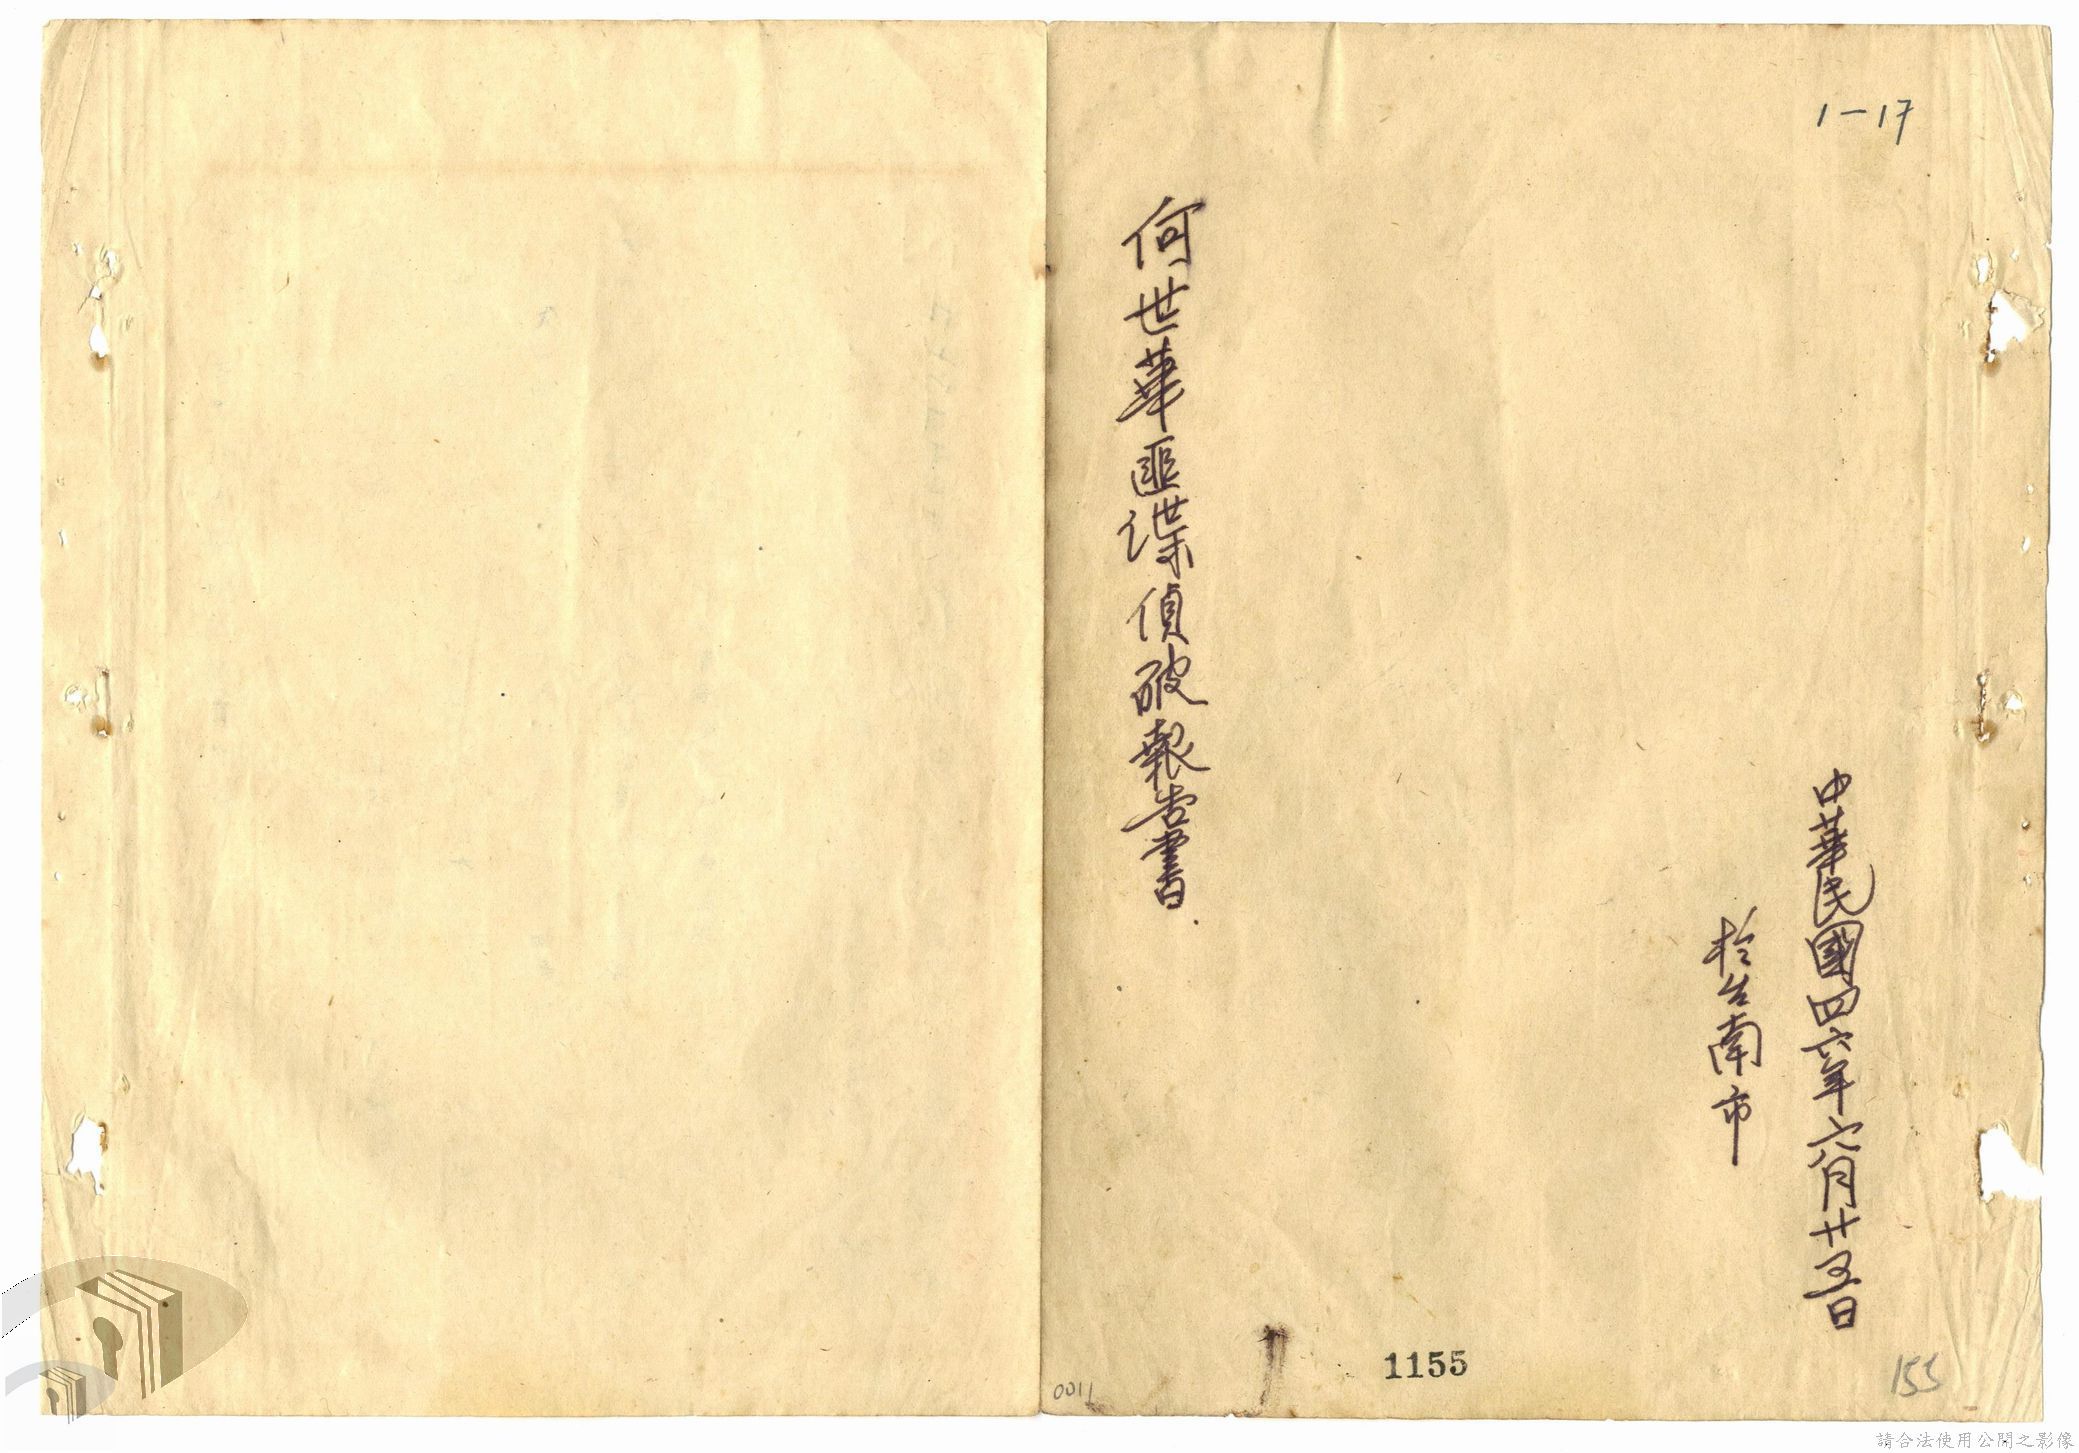 1-17
中華民國四六年六月廿五日
於台南市
何世華匪諜偵破報告書.
1155
155
0011
請合法使用公開之影像